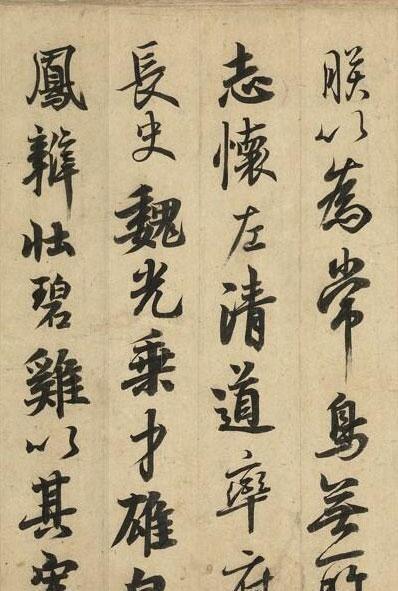 朕以為常鳥無所
志懷左清道率府
長史魏光乘才雄白
鳳辯壯碧雞以其宏